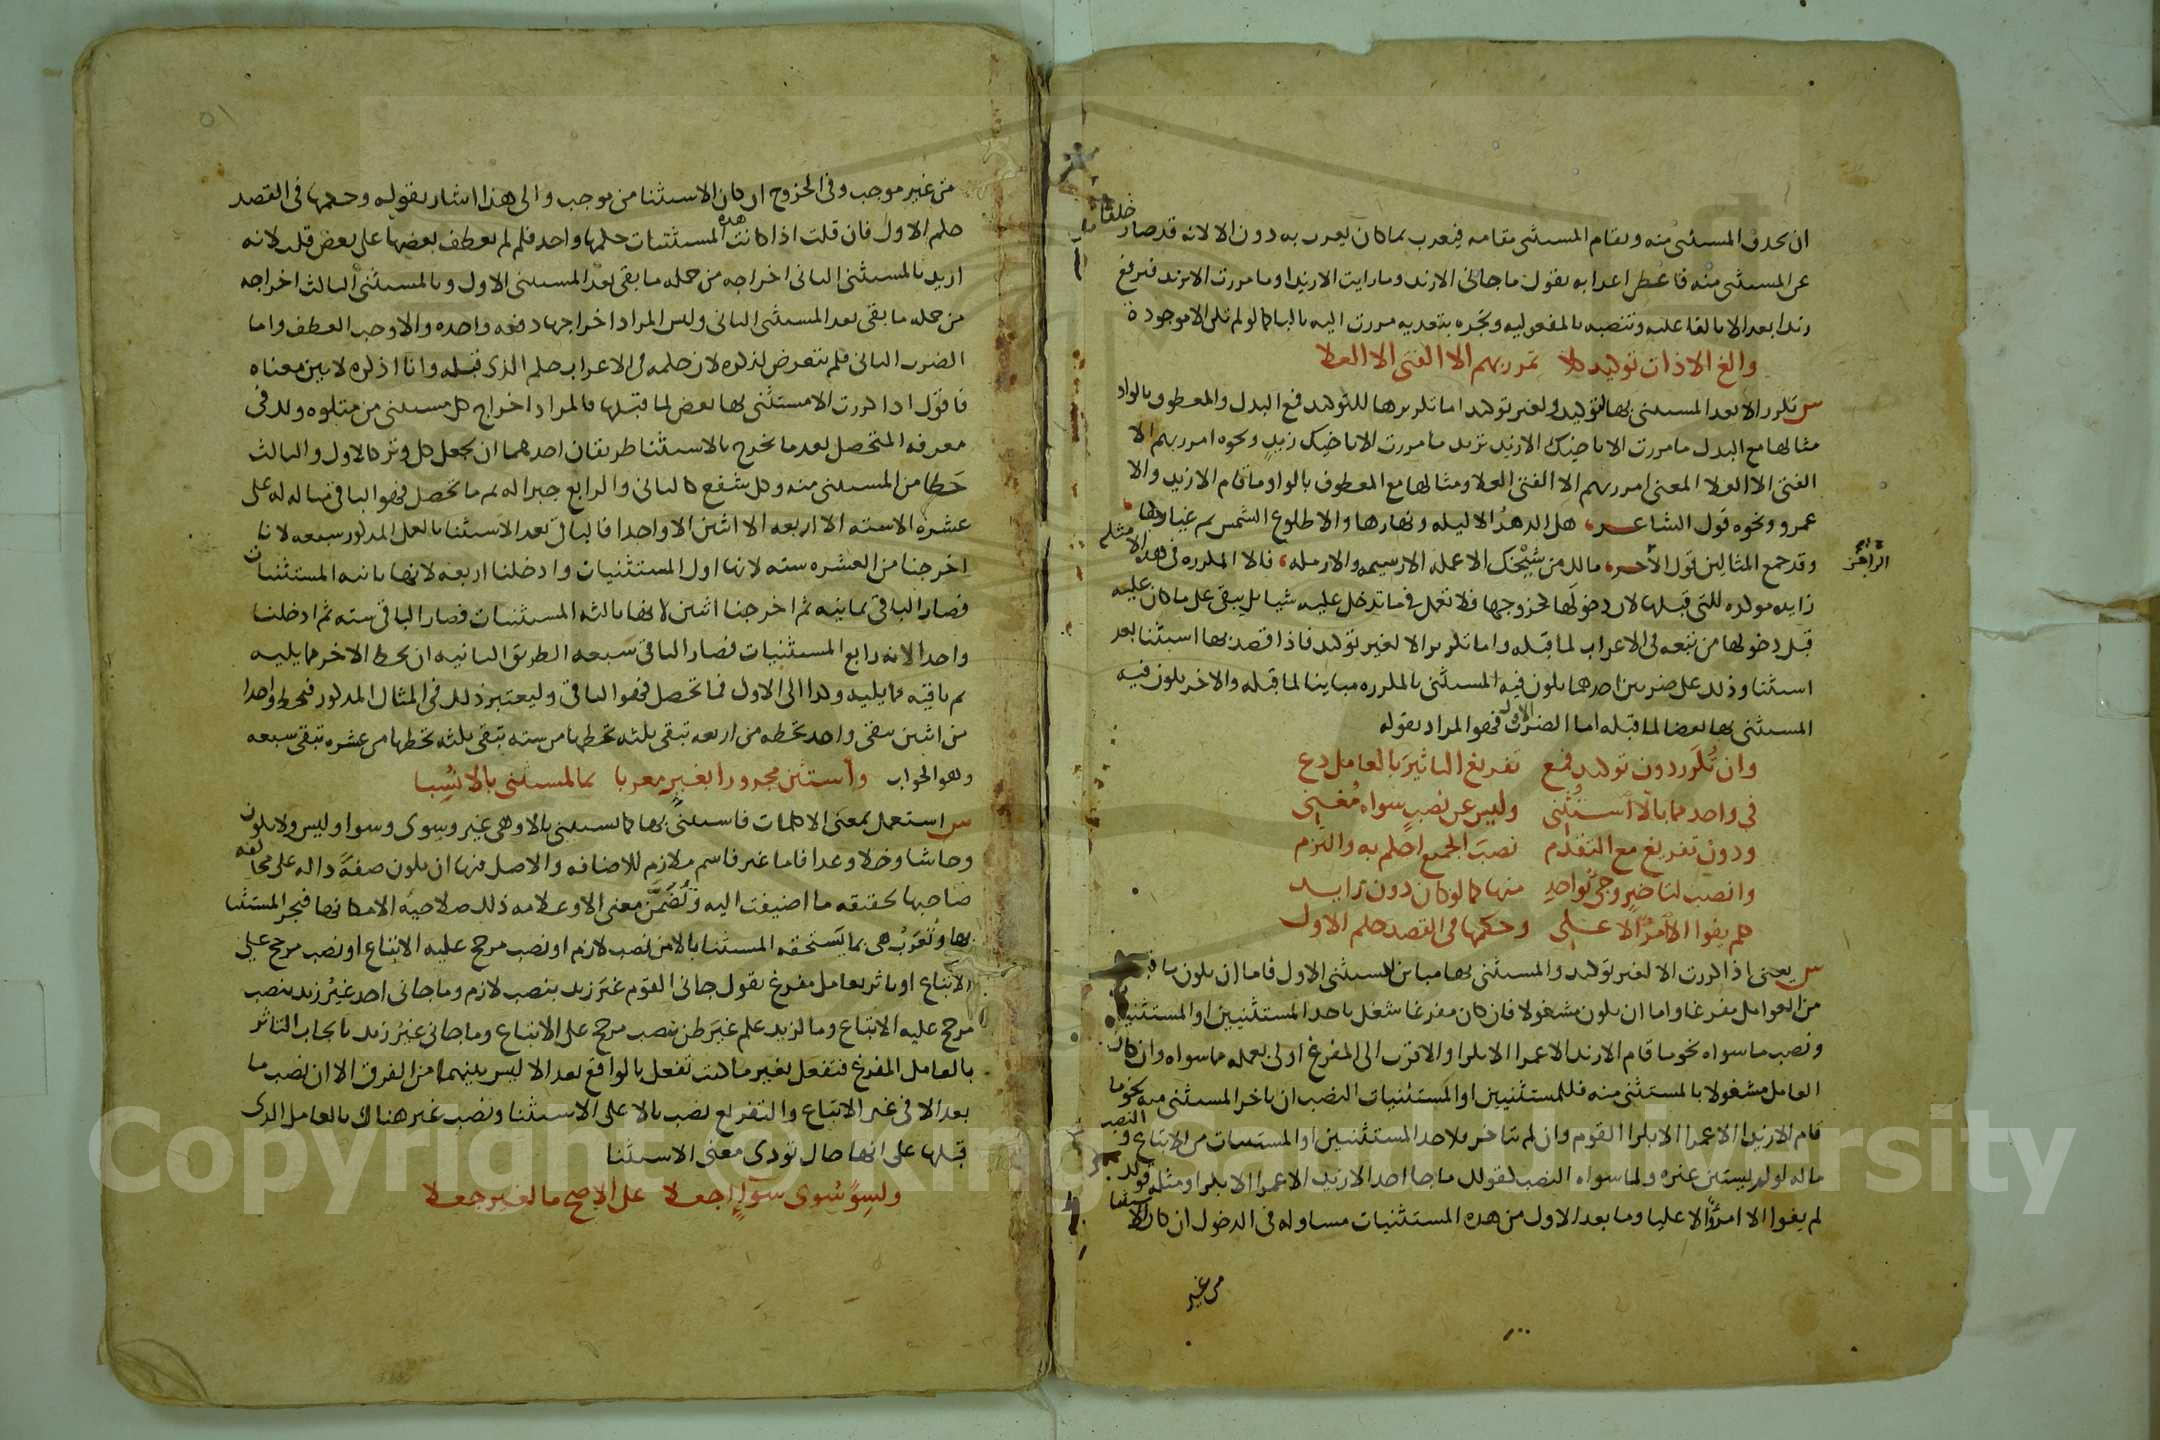 ان يحذف المستثنى منه ويقام المستثنى مقامه فيعرب بما كان يعرب به دون الا لانه قد صار خلفا
عن المستثنى منه فاعطى اعرابه تقول ما جاني الا زيد وما رايت الا زيدا وما مررت الا بزيد فترفع
زيدا بعد الا بالفاعليه وتنصبه بالمفعوليه وتجره بتعديه مررت اليه بالبا كما لو لم تكن الا موجودة
والغ الا ذات توكيد كلا تمرر بهم الا الفتى الا العلا
س تكرر الا بعد المستثنى بها لتوكيد ولغير توكيد اما تكريرها للتوكيد فمع البدل والمعطوف بالواو
مثالها مع البدل ما مررت الا باخيك الا زيد تريد ما مررت الا باخيك زيد ونحوه امرر بهم الا
الفتى الا العلا المعنى امرر بهم الا الفتى العلا ومثالها مع المعطوف بالواو ما قام الا زيد والا
عمرو ونحوه قول الشاعر هل الدهر الا ليله ونهارها والا طلوع الشمس ثم غيارها
وقد جمع المثالين قول الآخر مالك من شيخك الا عمله الا رسيمه والا رمله فالا المكرره في هذه الامثله
الراجز
زايده موكده للتي قبلها لان دخولها كخروجها فلا تعمل في ما تدخل عليه شيا بل يبقى على ما كان عليه
قبل دخولها من تبعه في الاعراب لما قبله واما تكرير الا لغير توكيد فاذا قصد بها استثنا بعد
استثنا وذلك على ضربين احدهما يكون فيه المستثنى بالمكرره مباينا لما قبله والاخر يكون فيه
المستثنى بها بعضا لما قبله اما الضرب الاول فهو المراد بقوله
وان تكرر دون توكيد فمع تفريغ التاثير بالعامل دع
في واحد مما بالا استثني وليس عن نصب سواه مغني
ودون تفريغ مع التقدم نصب الجميع احكم به والتزم
وانصب لتاخير وجئ بواحد منها كما لو كان دون زايد
كلم يفوا الا امرؤ الا علي وحكمها في القصد حكم الاول
س يعني اذا كررت الا لغير توكيد والمستثنى بها مباين للمستثنى الاول فاما ان يكون ما قبلها
من العوامل مفرغا واما ان يكون مشغولا فان كان مفرغا شغل باحد المستثنيين او المستثنيات
ونصب ما سواه نحو ما قام الا زيد الا عمرا الا بكرا والاقرب الى المفرغ اولى بعمله مما سواه وان كان
العامل مشغولا بالمستثنى منه فللمستثنيين او المستثنيات النصب ان تاخر المستثنى منه نحو ما
قام الا زيدا الا عمرا الا بكرا القوم وان لم يتاخر فلاحد المستثنيين او المستثنيات من الاتباع والنصب
ما له لو لم يستثن غيره ولما سواه النصب كقولك ما جا احد الا زيد الا عمرا الا بكرا ومثله قولك
لم يفوا الا امرؤ الا عليا وما بعد الاول من هذه المستثنيات مساو له في الدخول ان كان الاستثنا
من غير
من غير موجب وفي الخروج ان كان الاستثنا من موجب والى هذا اشار بقوله وحكمها في القصد
حكم الاول فان قلت اذا كانت هذه المستثنيات حكمها واحد فلم لم يعطف بعضها على بعض قلت لانه
اريد بالمستثنى الثاني اخراجه من جمله ما بقى بعد المستثنى الاول وبالمستثنى الثالث اخراجه
من جمله ما بقى بعد المستثنى الثاني وليس المراد اخراجها دفعه واحده والا وجب العطف واما
الضرب الثاني فلم يتعرض لذكره لان حكمه في الاعراب حكم الذي قبله وانا اذكره لابين معناه
فاقول اذا كررت الا مستثنى بها بعض لما قبلها فالمراد اخراج كل مستثنى من متلوه ولك في
معرفه المتحصل بعد ما يخرج بالاستثنا طريقان احدهما ان يجعل كل وتر كالاول والثالث
حطا من المستثنى منه وكل شفع كالثاني والرابع جبرا له ثم ما تحصل فهو الباقي مثاله له على
عشره الا سته الا اربعه الا اثنين الا واحدا فالباقي بعد الاستثنا بالعمل المذكور سبعه لانا
اخرجنا من العشره سته لانها اول المستثنيات وادخلنا اربعه لانها ثانيه المستثنيات
فصار الباقي ثمانيه ثم اخرجنا اثنين لانها ثالثه المستثنيات فصار الباقي سته ثم ادخلنا
واحدا لانه رابع المستثنيات فصار الباقي سبعه الطريق الثانيه ان تحط الاخر مما يليه
ثم باقيه مما يليه وكذا الى الاول فما تحصل فهو الباقي وليعتبر ذلك في المثال المذكور فتحط واحدا
من اثنين يبقى واحد تحطه من اربعه تبقى ثلثه تحطها من سته تبقى ثلثه تحطها من عشره تبقى سبعه
وهو الجواب واستثن مجرورا بغير معربا بما لمستثنى بالا نسبا
س استعمل بمعنى الا كلمات فاستثني بها كما يستثنى بالا وهي غير وسوى وسوا وليس ولا يكون
وحاشا وخلا وعدا فاما غير فاسم ملازم للاضافه والاصل فيها ان يكون صفة داله على مخالفه
صاحبها لحقيقه ما اضيفت اليه وتضمن معنى الا وعلامه ذلك صلاحيه الا مكانها فيجر المستثنا
بها وتعرب هي بما يستحقه المستثنا بالا من نصب لازم او نصب مرجح عليه الاتباع او نصب مرجح على
الاتباع او تاثر بعامل مفرغ تقول جاني القوم غير زيد بنصب لازم وما جاني احد غير زيد بنصب
مرجح عليه الاتباع وما لزيد علم غير ظن بنصب مرجح على الاتباع وما جاني غير زيد بايجاب التاثر
بالعامل المفرغ فتفعل بغير ما كنت تفعل بالواقع بعد الا ليس بينهما من الفرق الا ان نصب ما
بعد الا في غير الاتباع والتفريغ نصب بالا على الاستثنا ونصب غير هناك بالعامل الذي
قبلها على انها حال تودي معنى الاستثنا
ولسوى سوى سواء اجعلا على الاصح ما لغير جعلا
Copyright © King Saud University